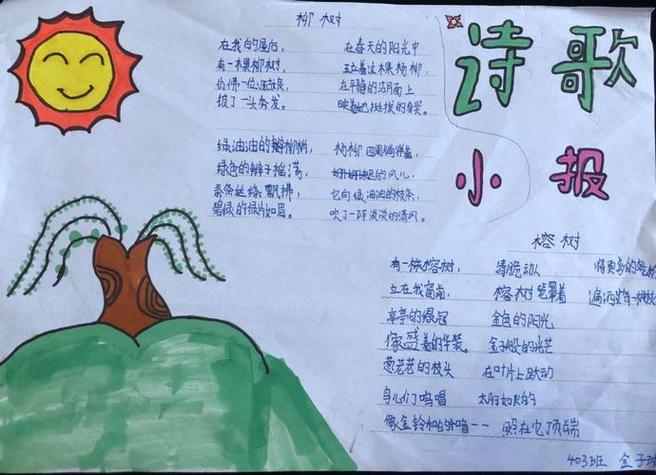 诗歌
小报
柳树
在我的屋后，
有一棵柳树，
仿佛一位
披了一头秀发。
在春天的阳光中
立着这棵杨柳，
在平静的湖面上
映着他挺拔的身
绿油油的柳
绿色的辫子摇荡，
条条丝绦飘拂，
碧绿的绿片如眉。
杨柳
的风儿，
它向绿油油的枝条
吹了一阵淡淡的清风。
榕树
有一株榕树，
立在我窗前，
亭亭的绿冠
像盛着的华装
葱茏的枝头
鸟儿们鸣唱
像金铃
清脆动人
榕树笼罩着
金色的阳光
金子般的光芒
在叶片上跃动
太阳如火的
照在它顶端
将更亮的
遍洒
403班 金子